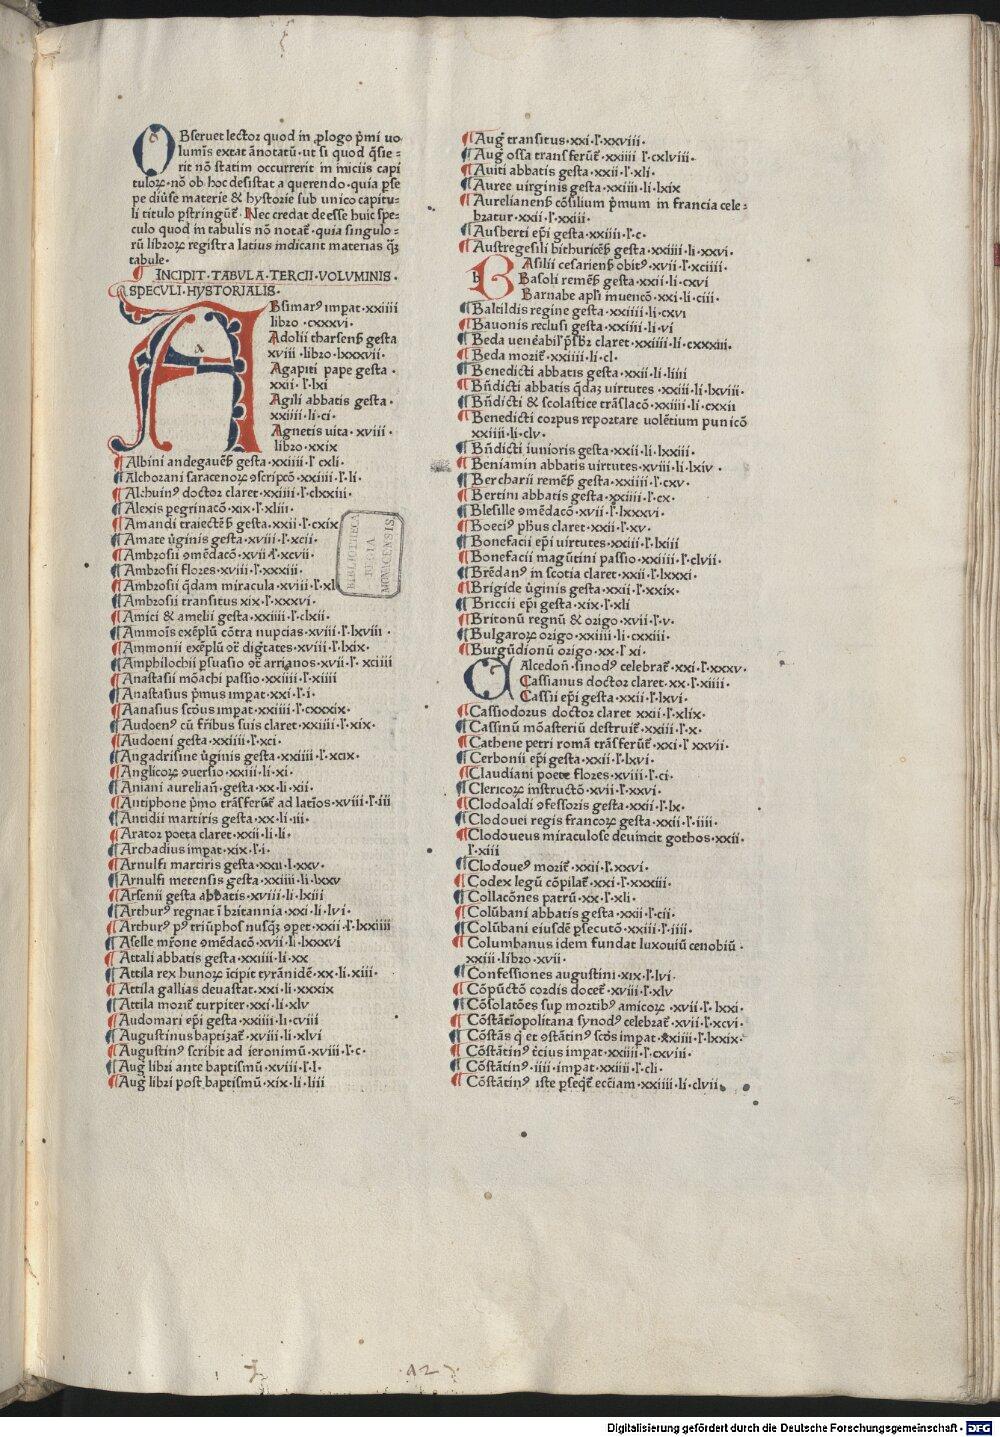 OBseruet lector quod in ꝓlogo p̄mi uo-
lumīs extat ānotatū·ut si quod q̄sie=
rit nō statim occurrerit in iniciis capi
tuloꝝ·nō ob hoc desistat a querendo·quia ꝑse
pe diūse materie & hystorie sub unico capitu-
li titulo ꝑstringūt̄·Nec credat deesse huic spe-
culo quod in tabulis nō notat̄·quia singulo-
rū libroꝝ registra latius indicant materias q̄ꝫ
tabule·
INCIPIT·TABVLA·TERCII·VOLVMINIS·
SPECVLI·HYSTORIALIS·
ABsimarꝰ impat·xxiiii
libro·cxxxvi·
Adolii tharsenß gesta
xviii·libro·lxxxvii·
Agapiti pape gesta·
xxii·l̓·lxi
Agili abbatis gesta·
xxiiii·li·ci·
Agnetis uita·xviii·
libro·xxix
Albini andegauēß gesta·xxiiii·l̓ cxli·
Alchorani saracenoꝝ ꝯscripcō·xxiiii·l̓·li·
Alchuinꝰ doctor claret·xxiiii·l̓·clxxiii·
Alexis ꝑegrinacō·xix·l̓·xliii·
Amandi traiectēß gesta·xxii·l̓·cxix
Amate u̓ginis gesta·xviii·l̓·xcii·
Ambrosii ꝯmēdacō·xvii·l̓·xcvii·
Ambrosii flores·xviii·l̓·xxxiii·
Ambrosii q̄dam miracula·xviii·l̓·xl
Ambrosii transitus xix·l̓·xxxvi·
Amici & amelii gesta·xxiiii·l̓·clxii·
Ammoīs exēplū cōtra nupcias·xviii·l̓·lxviii·
Ammonii exēplū ot̄ dig̓tates·xviii·l̓·lxix·
Amphilochii ꝑsuasio ot̄ arrianos·xvii·l̓·xciiii
Anastasii mōachi passio·xxiiii·l̓·xiiii
Anastasius p̄mus impat·xxi·l̓·i·
Aanasius scd̄us impat·xxiiii·l̓·cxxxix·
Audoenꝰ cū fr̄ibus suis claret·xxiiii·l̓·xix·
Audoeni gesta·xxiiii·l̓·xci·
Angadrisine u̓ginis gesta·xxiiii·l̓·xcix·
Anglicoꝝ ꝯuersio·xxiii·li·xi·
Aniani aureliañ·gesta·xx·li·xii·
Antiphone p̄mo trāsferūt̄ ad latīos·xviii·l̓·iii
Antidii martiris gesta·xx·li·iii·
Arator poeta claret·xxii·li·li·
Archadius imꝑat·xix·l̓·i·
Arnulfi martiris gesta·xxii·l·xxv·
Arnulfi metensis gesta·xxiiii·li·lxxv
Arsenii gesta abbatis·xviii·li·lxiii
Arthurꝰ regnat ī britannia·xxi·li·lvi·
Arthurꝰ pꝰ triūphos nusq̄ꝫ ꝯpet·xxii·l̓·lxxiiii
Aselle mr̄one ꝯmēdacō·xvii·li·lxxxvi
Attali abbatis gesta·xxiiii·li·xx
Attila rex hunoꝝ īcipit tyrānidē·xx·li·xiii·
Attila gallias deuastat·xxi·li·xxxix
Attila morit̄ turpiter·xxi·li·xlv
Audomari ep̄i gesta·xxiiii·li·cviii
Augustinus baptizat̄·xviii·li·xlvi
Augustinꝰ scribit ad ieronimū·xviii·l̓·c·
Aug̓ libri ante baptismū·xviii·l̓·l·
Aug̓ libri post baptismū·xix·li·liii
Aug̓ transitus·xxi·l̓·xxviii·
Aug̓ ossa transferūt̄·xxiiii l̓·cxlviii·
Auiti abbatis gesta·xxii·l̓·xli·
Auree uirginis gesta·xxiiii·li·lxix
Aurelianenß cōsilium p̄mum in francia cele-
bratur·xxii·l̓·xxiii·
Ausberti ep̄i gesta·xxiiii·l̓·c·
Austregesili bithuricēß gesta·xxiiii·li·xxvi·
BAsilii cesarienß obitꝰ·xvii·l̓·xciiii·
Basoli remēß gesta·xxii·li·cxvi
Barnabe apl̓i inuencō·xxi·li·ciii·
Baltildis regine gesta·xxiiii·li·cxvi
Bauonis reclusi gesta·xxiiii·li·vi
Beda uenēabil̓ p̄sbr̄ claret·xxiiii·li·cxxxiii·
Beda morit̄·xxiiii·li·cl·
Benedicti abbatis gesta·xxii·li·liiii
Bn̄dicti abbatis q̄daꝫ uirtutes·xxiii·li·lxviii·
Bn̄dicti & scolastice trāslacō·xxiiii·li·cxxii
Benedicti corpus reportare uolētium punicō
xxiiii·li·clv·
Bn̄dicti iunioris gesta·xxii·li·lxxiii·
Beniamin abbatis uirtutes·xviii·li·lxiv·
Bercharii remēß gesta·xxiiii·l̓·cxv·
Bertini abbatis gesta·xxiiii·l̓·cx·
Blesille ꝯmēdacō·xvii·l̓·lxxxvi·
Boeciꝰ ph̄us claret·xxii·l̓·xv·
Bonefacii ep̄i uirtutes·xxiii·l̓·lxiii
Bonefacii magūtini passio·xxiiii·l̓·clvii·
Brēdanꝰ in scotia claret·xxii·l̓·lxxxi·
Brigide u̓ginis gesta·xxii·l̓·xxix·
Briccii ep̄i gesta·xix·l̓·xli
Britonū regnū & origo·xvii·l̓·v·
Bulgaroꝝ origo·xxiiii·li·cxxiii·
Burgūdionū origo·xx·l̓ xi·
CAlcedoñ·sinodꝰ celebrat̄·xxi·l̓·xxxv·
Cassianus doctor claret·xx·l̓·xiiii·
Cassii ep̄i gesta·xxii·l̓·lxvi·
Cassiodorus doctor claret xxii·l̓·xlix·
Cassinū mōasteriū destruit̄·xxiii·l̓·x·
Cathene petri romā trāsferūt̄·xxi·l̓ xxvii·
Cerbonii ep̄i gesta·xxii·l̓·lxvi·
Claudiani poete flores·xviii·l̓·ci·
Clericoꝝ instructō·xvii·l̓·xxvi·
Clodoaldi ꝯfessoris gesta·xxii·l̓·lx·
Clodouei regis francoꝝ gesta·xxii·l̓·iiii·
Clodoueus miraculose deuincit gothos·xxii·
l̓·xiii
Clodoueꝰ morit̄·xxii·l̓·xxvi·
Codex legū cōpilat̄·xxi·l̓·xxxiii·
Collacōnes patrū·xx·l̓·xli·
Colūbani abbatis gesta·xxii·l̓·cii·
Colūbani eiusdē ꝑsecutō·xxiii·l̓·iiii·
Columbanus idem fundat luxouiū cenobiū·
xxiii·libro·xvii·
Confessiones augustini·xix·l̓·lvi·
Cōpūctō cordis docet̄·xviii·l̓·xlv
Cōsolatōes suꝑ mortibꝰ amicoꝝ·xvii·l̓·lxxi·
Cōstātīopolitana synodꝰ celebrat̄·xvii·l̓·xcvi·
Cōstās q̓ et ꝯstātinꝰ scd̄s impat·xxiiii·l̓·lxxix·
Cōstātinꝰ t̓cius impat·xxiiii·l̓·cxviii·
Cōstātinꝰ·iiii·imꝑat·xxiiii·l̓·cli·
Cōstātinꝰ iste ꝑseqt̄ ecc̄iam·xxiiii·li·clvii·
BIBLIOTHECA
REGIA
MONACENSIS.
a2
Digitalisierung gefördert durch die Deutsche Forschungsgemeinschaft - DFG